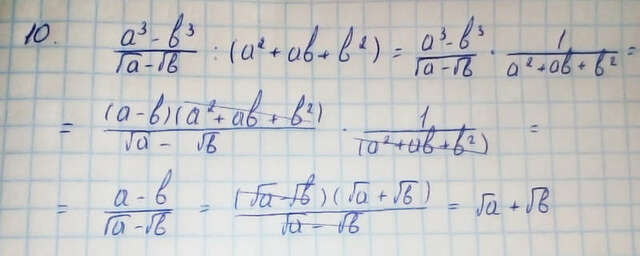 10. (a³ - b³)/(√a - √b) : (a² + ab + b²) = (a³ - b³)/(√a - √b) · 1/(a² + ab + b²) =
= (a - b)(a² + ab + b²)/(√a - √b) · 1/(a² + ab + b²) =
= (a - b)/(√a - √b) = (√a - √b)(√a + √b)/(√a - √b) = √a + √b